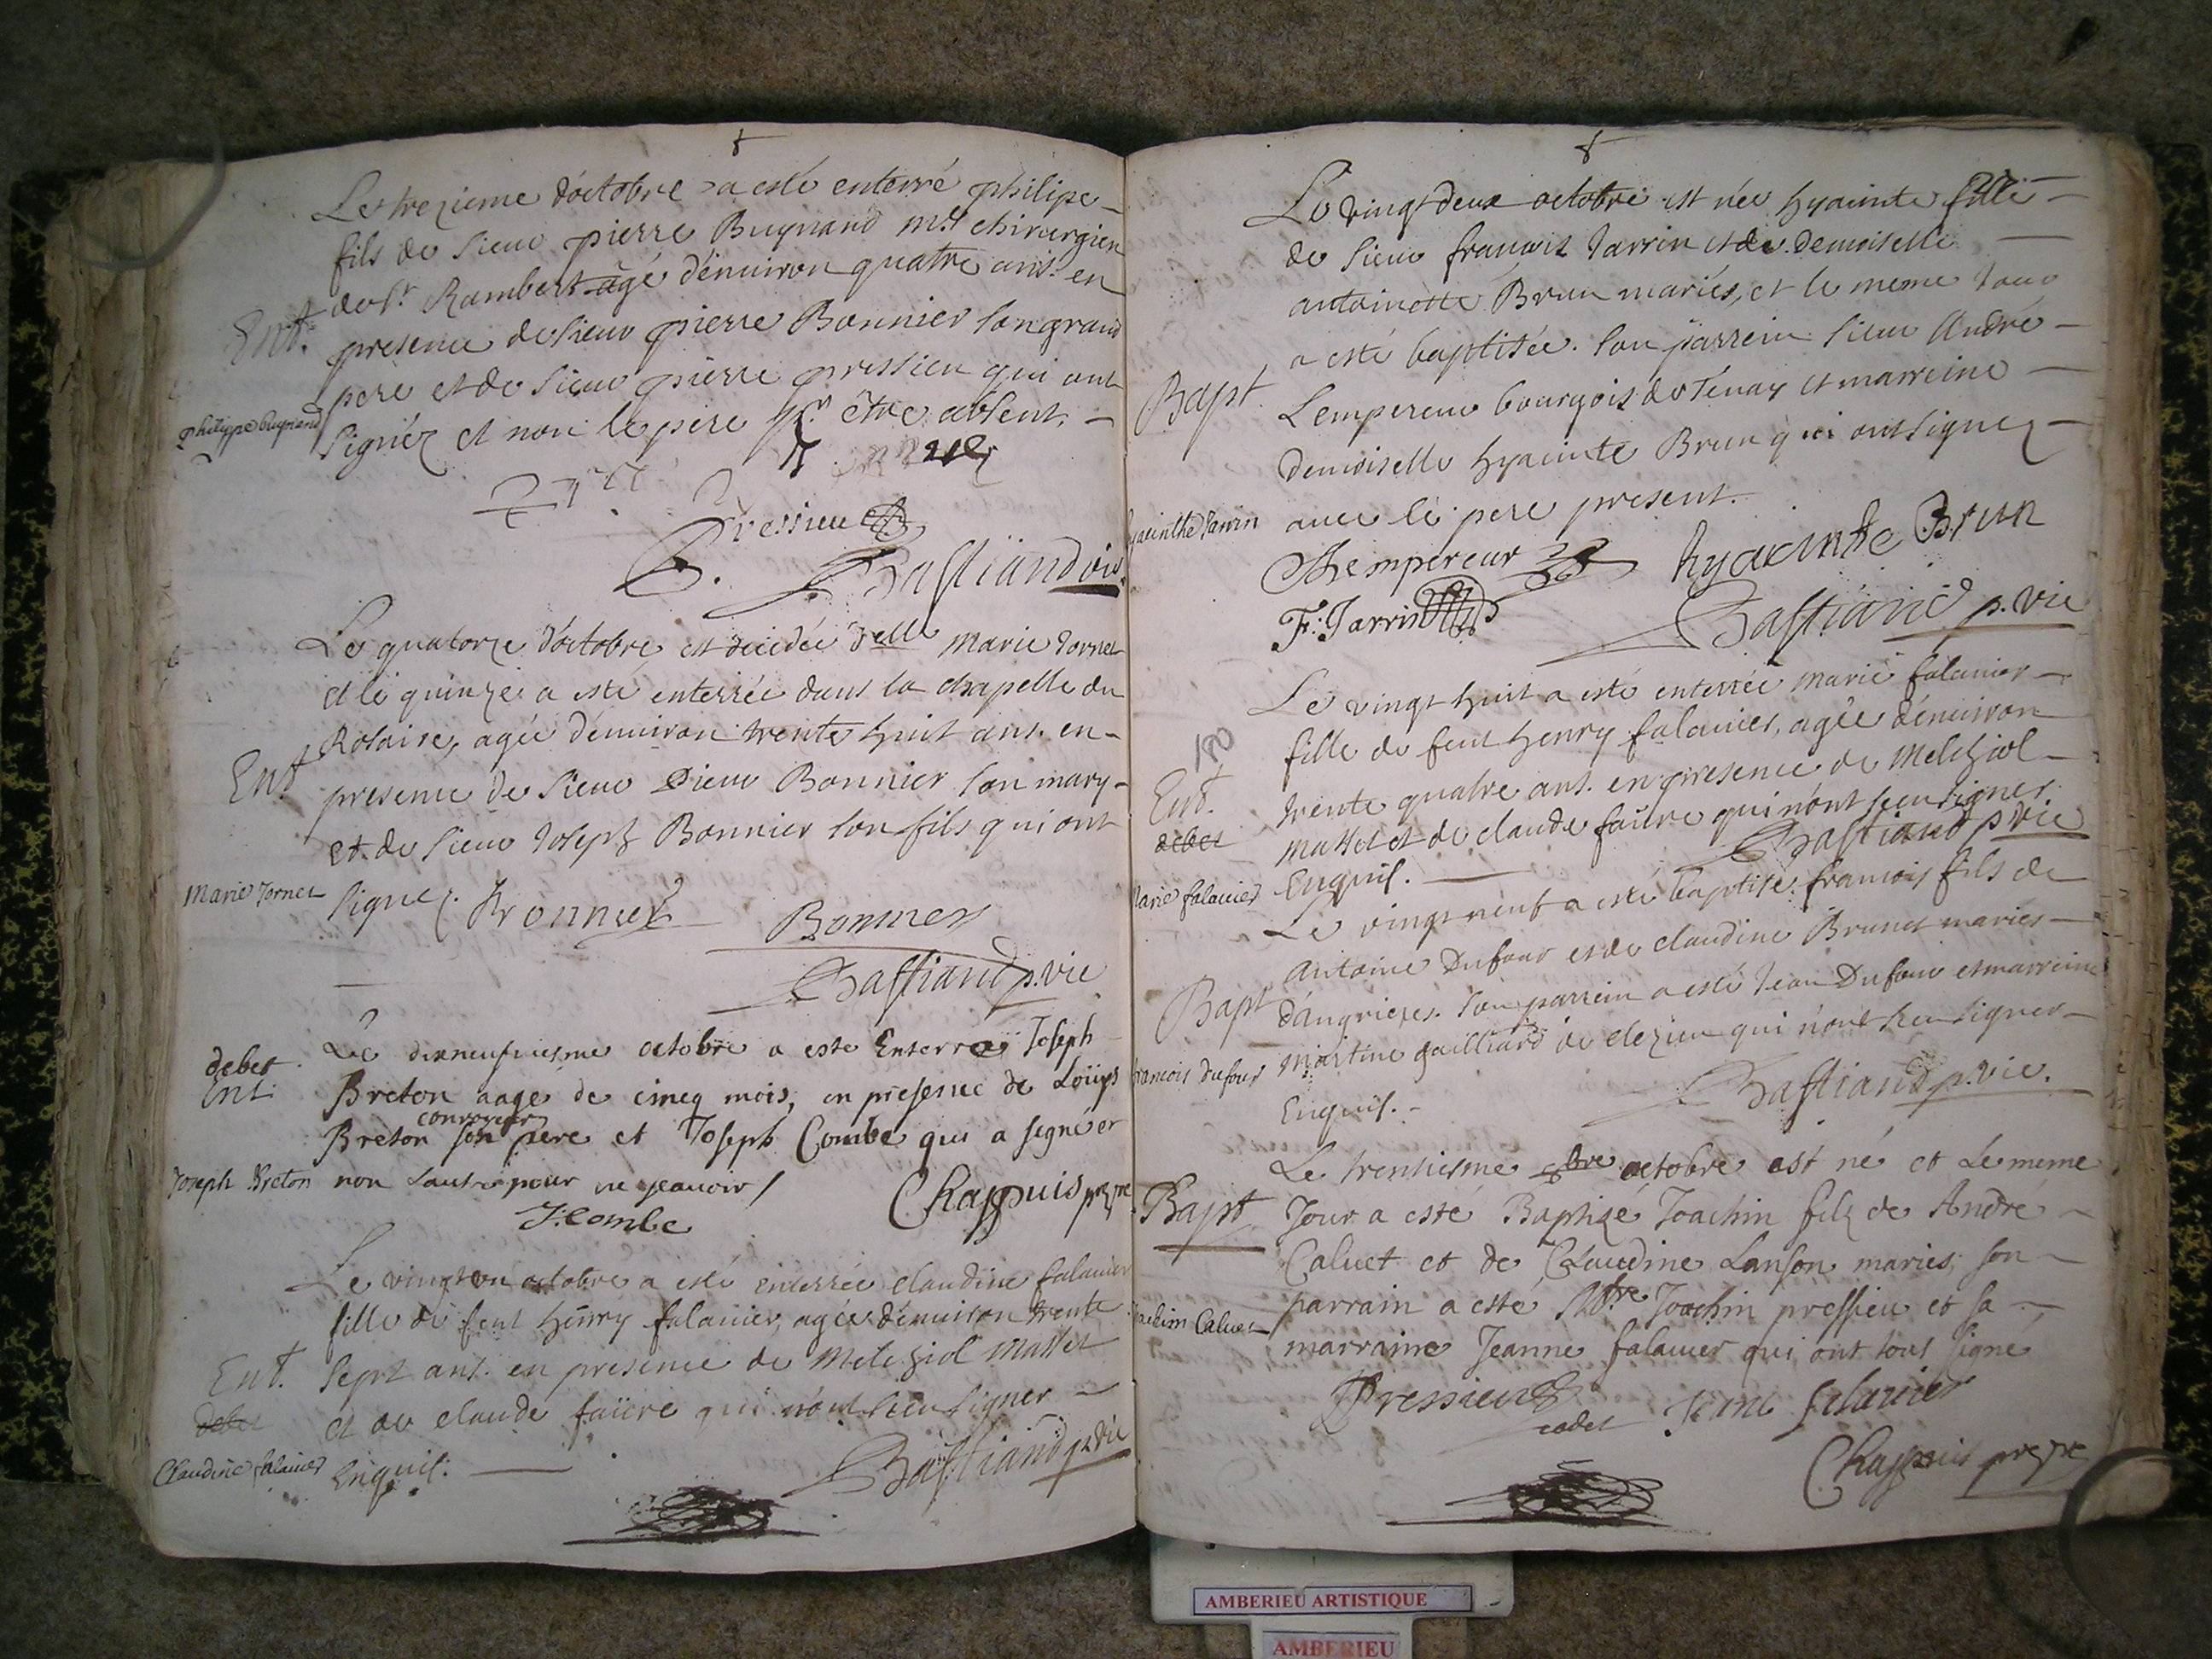 Le trezieme d'octobre a esté enterré philipe
fils de sieur pierre Bugnand mtre chirurgien
de st Rambert agé d'enuiron quatre ans. en
Ent. presence de sieur pierre Bonnier son grand
pere et de sieur pierre pressieu qui ont
philippe bugnand signéz et non le pere pr être absent.
Pressieu
Bastiand vic.
Le quatorze d'octobre est decidée delle marie Jornet
et le quinze a esté enterrée dans la chapelle du
Rosaire, agée d'enuiron trente huit ans. en
Ent presence de sieur Pierre Bonnier son mary
et de sieur Joseph Bonnier son fils qui ont
marie Jornet signez. Bonnier Bonnier
Bastiand p. vic
debet Le dixneufuiesme octobre a este Enterré Joseph
Ent. Breton aage de cincq mois, en presence de Loüys
conroyeur
Breton son pere et Joseph Combe qui a signé et
Joseph Breton non l'autre pour ne sçauoir /
J: Combe Chappuis pre
Le vingt un octobre a esté enterrée claudine falauier
fille de feut henry falauier, agée d'enuiron trente
Ent. sept ans. en presence de Melchiol Mattet
debet et de claude faüre qui n'ont sceu signer
Claudine falauier Enquis.
Bastiand p. vic
Le vingt deux octobre est née hyacinte fille
de sieur francois Jarrin et de Demoiselle
antoinette Brun mariés, et le meme Jour
a esté baptisée. son parrein sieur André
Bapt. Lempereur bourgois de Tenay et marreine
Demoiselle hyacinte Brun qui ont signez
hyacinthe Jarrin auec le pere present.
Lempereur hyacinte Brun
F: Jarrin
Bastiand p. vic
Le vingt huit a esté enterrée marie falauier
180 fille de feut henry falauier, agée d'enuiron
Ent. trente quatre ans. en presence de Melchiol
debet mattet et de claude faüre qui n'ont sceu signer
Marie falauier Enquis. Bastiand p vic
Le vingt neuf a esté baptisé francois fils de
antoine Dufour et de claudine Brunet mariés
Bapt d'angrieres. son parrein a esté Jean Dufour et marreine
francois dufour martine gailliard de clezieu qui n'ont sceu signer
Enquis. Bastiand p. vic.
Le trentiesme 8bre octobre est né et Le meme
Bapt Jour a esté Baptizé Joachin filz de André
Caluet et de Claudine Lanson mariés, son
Joachim Caluet parrain a esté Mtre Joachin pressieu et sa
marraine Jeanne falauier qui ont tous signé
Pressieu cadet Jeane falauier
Chappuis pre
AMBERIEU ARTISTIQUE
AMBERIEU